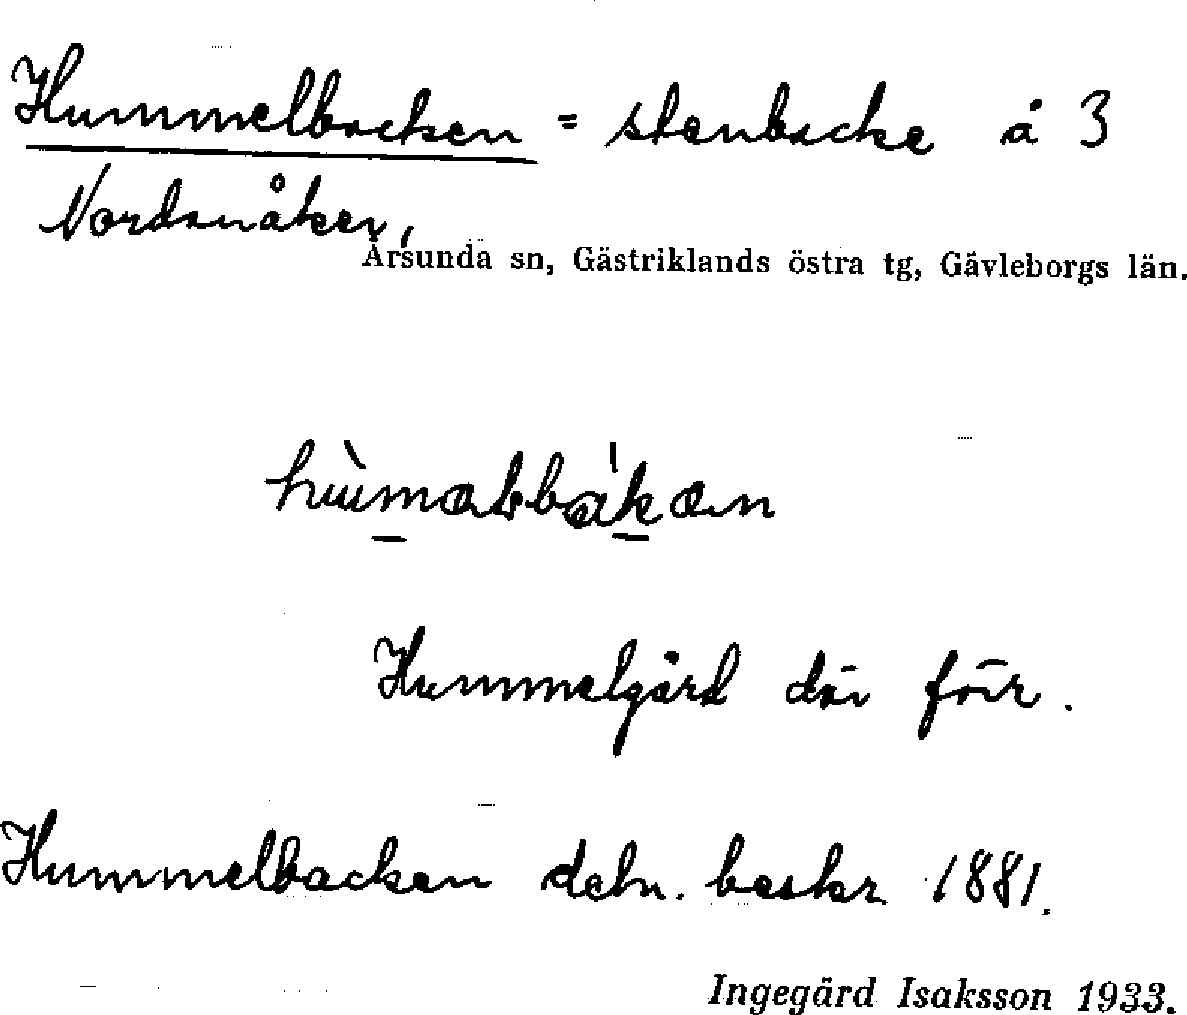 Hummelbacken = stenbacke å 3
Nordanåker,
Årsunda sn, Gästriklands östra tg, Gävleborgs län.
Hummelgård där förr.
Hummelbacken deln. beskr 1881.
Ingegärd Isaksson 1933.